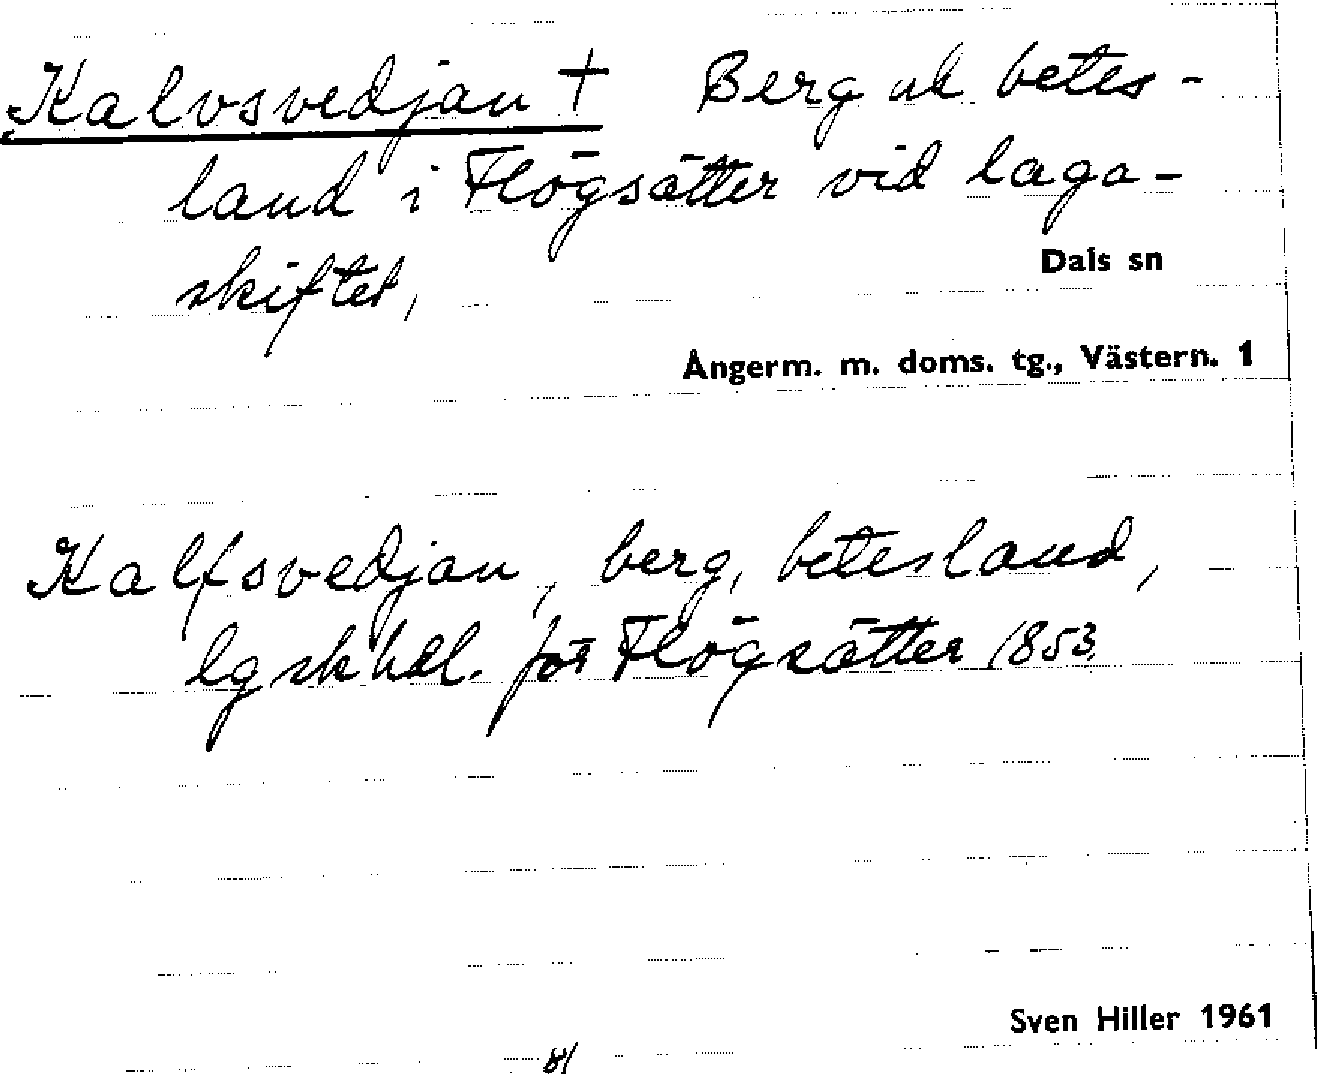 Kalvsvedjan † Berg ok betes-
land i Flögsätter vid laga-
skiftet,
Dals sn
Ångerm. m. doms. tg., Västern. 1
Kalfsvedjan, berg, betesland,
lgskhdl. för Flögsätter 1853.
Sven Hiller 1961
81